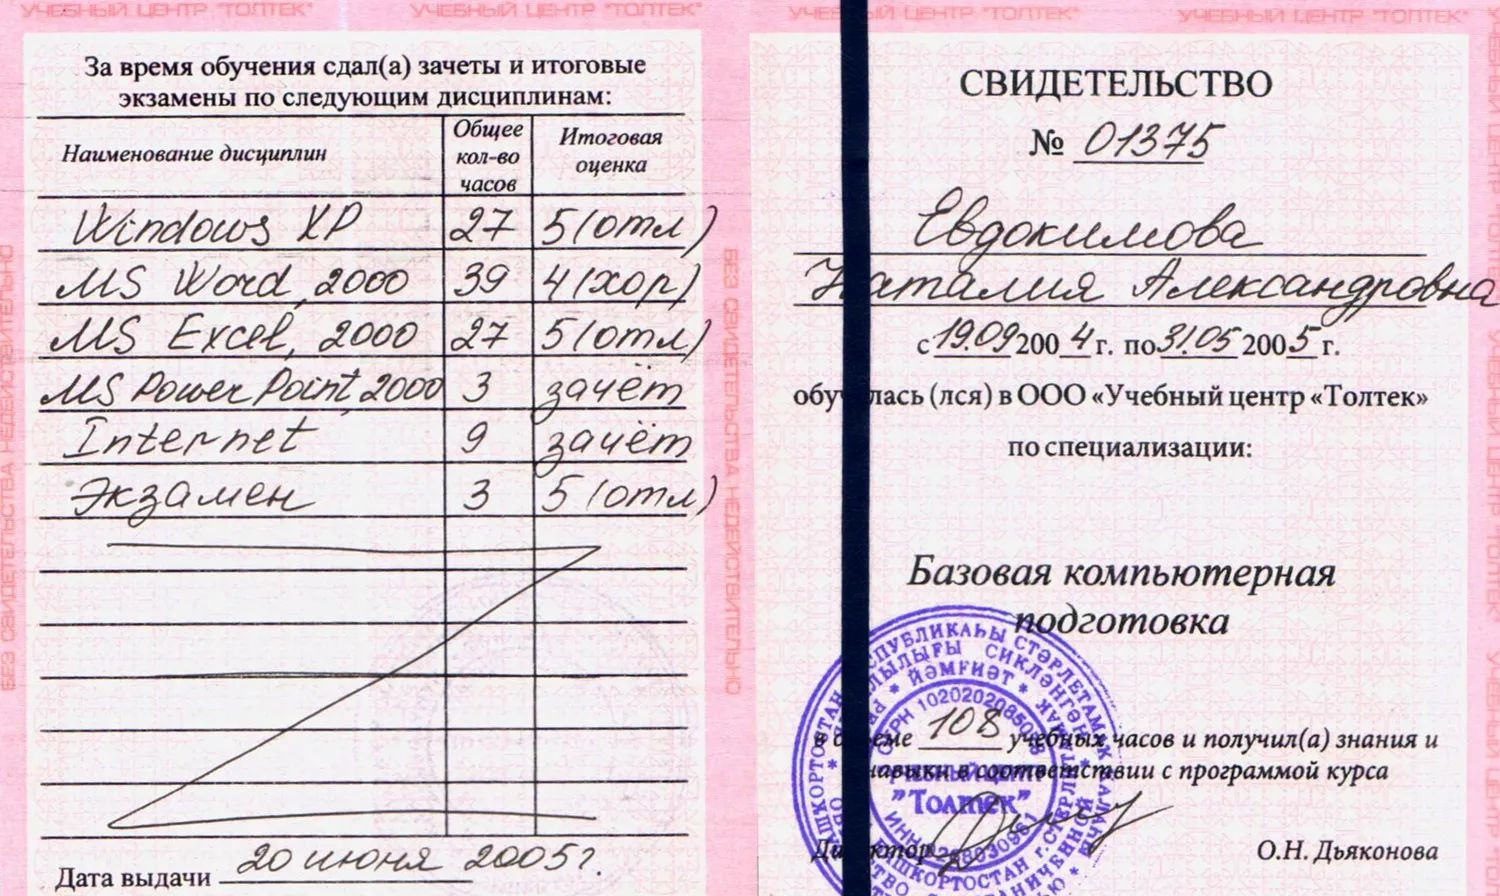 УЧЕБНЫЙ ЦЕНТР "ТОЛТЕК" УЧЕБНЫЙ ЦЕНТР "ТОЛТЕК"
За время обучения сдал(а) зачеты и итоговые
экзамены по следующим дисциплинам:
Наименование дисциплин Общее кол-во часов Итоговая оценка
Windows XP 27 5 (отл)
MS Word, 2000 39 4 (хор)
MS Excel, 2000 27 5 (отл)
MS Power Point, 2000 3 зачёт
Internet 9 зачёт
Экзамен 3 5 (отл)
Дата выдачи 20 июня 2005г
БЕЗ СВИДЕТЕЛЬСТВА НЕДЕЙСТВИТЕЛЬНО
БЕЗ СВИДЕТЕЛЬСТВА НЕДЕЙСТВИТЕЛЬНО
УЧЕБНЫЙ ЦЕНТР "ТОЛТЕК" УЧЕБНЫЙ ЦЕНТР "ТОЛТЕК"
СВИДЕТЕЛЬСТВО
№ 01375
Евдокимова
Наталия Александровна
с 19.09 2004 г. по 31.05 2005 г.
обу лась (лся) в ООО «Учебный центр «Толтек»
по специализации:
Базовая компьютерная
подготовка
108 учебных часов и получил(а) знания и
навыки в соответствии с программой курса
"Толтек"
О.Н. Дьяконова